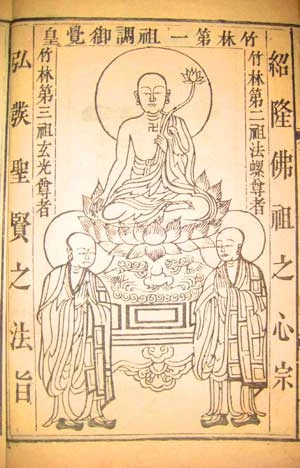 竹林第一祖調御覺皇
紹隆佛祖之心宗
竹林第二祖法螺尊者
卍
竹林第三祖玄光尊者
弘發聖賢之法旨